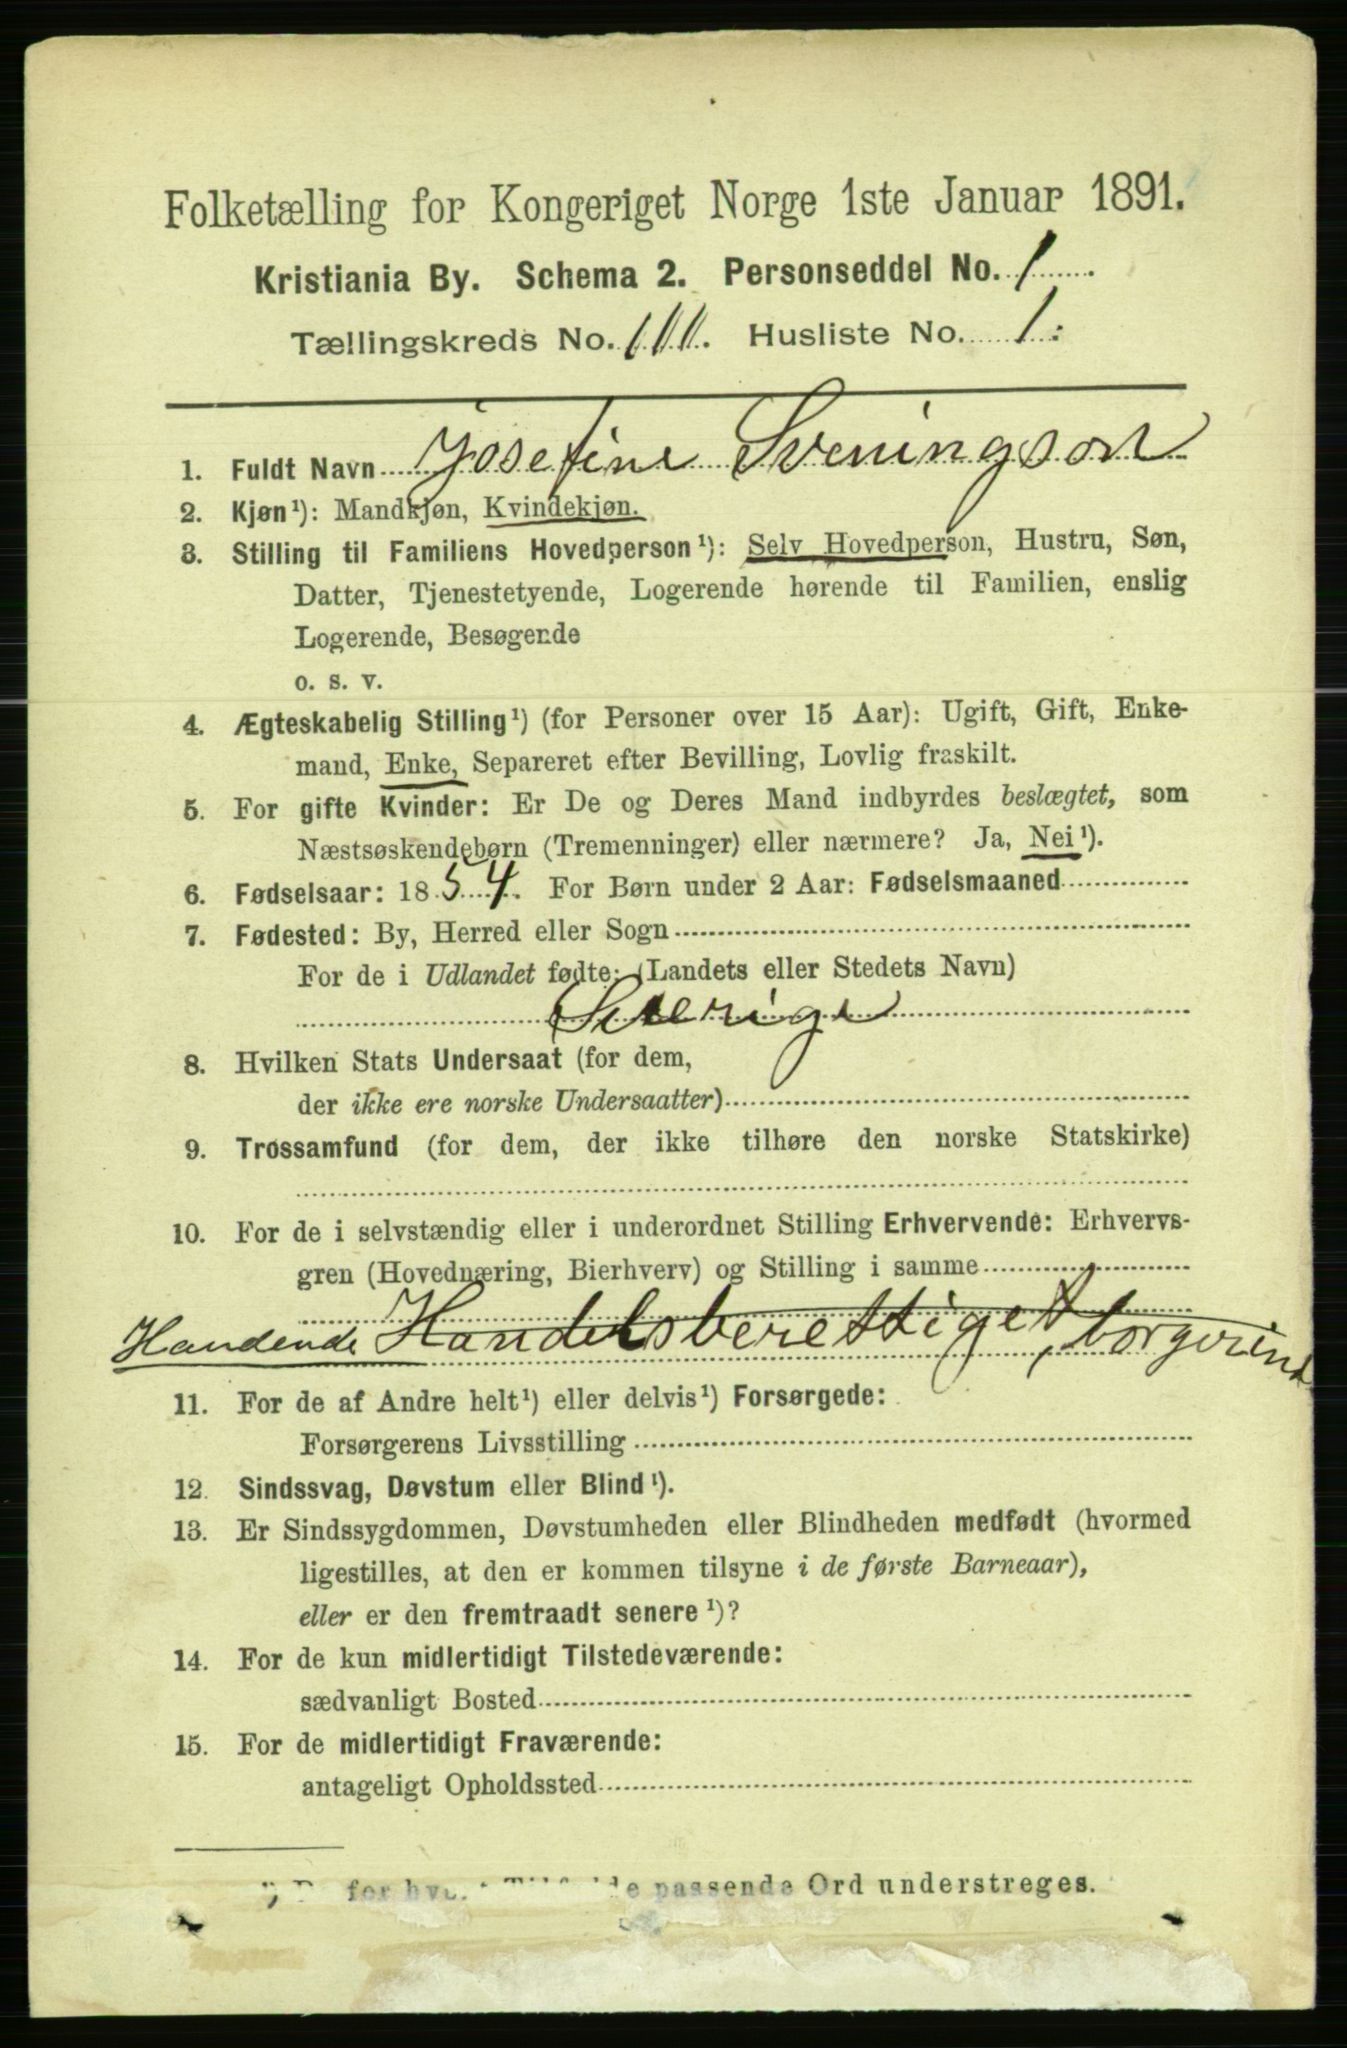 Folketælling for Kongeriget Norge 1ste Januar 1891.
Kristiania By. Schema 2. Personseddel No. 1.
Tællingskreds No. 111. Husliste No. 1.
1. Fuldt Navn Josefine Sveningson
2. Kjøn¹): Mandkjøn, Kvindekjøn.
3. Stilling til Familiens Hovedperson¹): Selv Hovedperson, Hustru, Søn,
Datter, Tjenestetyende, Logerende hørende til Familien, enslig
Logerende, Besøgende
o. s. v.
4. Ægteskabelig Stilling¹) (for Personer over 15 Aar): Ugift, Gift, Enke-
mand, Enke, Separeret efter Bevilling, Lovlig fraskilt.
5. For gifte Kvinder: Er De og Deres Mand indbyrdes beslægtet, som
Næstsøskendebørn (Tremenninger) eller nærmere? Ja, Nei¹).
6. Fødselsaar: 1854. For Børn under 2 Aar: Fødselsmaaned
7. Fødested: By, Herred eller Sogn
For de i Udlandet fødte: (Landets eller Stedets Navn)
Sverige
8. Hvilken Stats Undersaat (for dem,
der ikke ere norske Undersaatter)
9. Trossamfund (for dem, der ikke tilhøre den norske Statskirke)
10. For de i selvstændig eller i underordnet Stilling Erhvervende: Erhvervs-
gren (Hovednæring, Bierhverv) og Stilling i samme
Handende Handelsberettiget, borgerind
11. For de af Andre helt¹) eller delvis¹) Forsørgede:
Forsørgerens Livsstilling
12. Sindssvag, Døvstum eller Blind¹).
13. Er Sindssygdommen, Døvstumheden eller Blindheden medfødt (hvormed
ligestilles, at den er kommen tilsyne i de første Barneaar),
eller er den fremtraadt senere¹)?
14. For de kun midlertidigt Tilstedeværende:
sædvanligt Bosted
15. For de midlertidigt Fraværende:
antageligt Opholdssted
for passende Ord understreges.